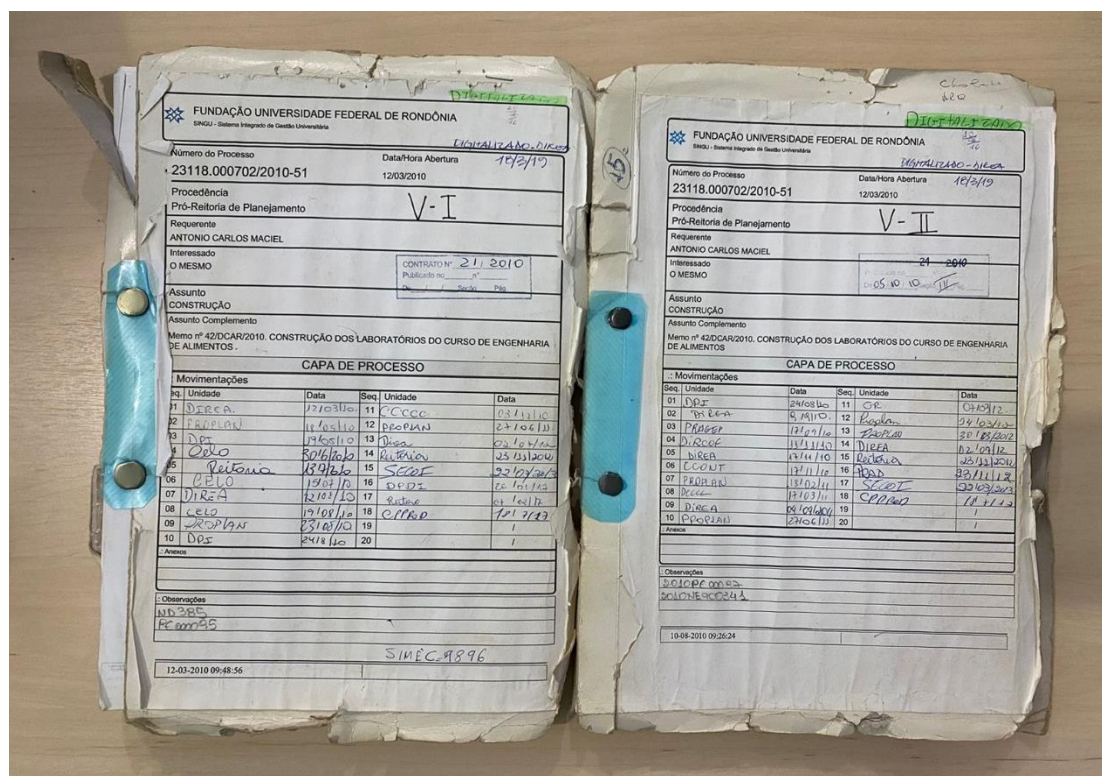 DIGITALIZADO
FUNDAÇÃO UNIVERSIDADE FEDERAL DE RONDÔNIA
SINGU - Sistema Integrado de Gestão Universitária
DIGITALIZADO-DIREA
18/3/19
Número do Processo
Data/Hora Abertura
23118.000702/2010-51
12/03/2010
Procedência
Pró-Reitoria de Planejamento
V-I
Requerente
ANTONIO CARLOS MACIEL
Interessado
O MESMO
CONTRATO Nº 21, 2010
Publicado no nº
Seção Pág
Assunto
CONSTRUÇÃO
Assunto Complemento
Memo nº 42/DCAR/2010. CONSTRUÇÃO DOS LABORATÓRIOS DO CURSO DE ENGENHARIA
DE ALIMENTOS .
CAPA DE PROCESSO
.: Movimentações
Seq. Unidade Data Seq. Unidade Data
01 DIREA 12/03/10 11
02 PROPLAN 12 PROPLAN 27/06/11
03 DPI 19/05/10 13
04 14 Reitoria 23/11/2012
05 Reitoria 15 SECOI
06 CELO 16 DPDI
07 DIREA 17
08 CELO 19/08/10 18 CPPROD
09 PROPLAN 23/08/10 19
10 DPI 24/8/10 20
.: Anexos
.: Observações
ND385
SIMEC-9896
12-03-2010 09:48:56
15
DIGITALIZADO
FUNDAÇÃO UNIVERSIDADE FEDERAL DE RONDÔNIA
SINGU - Sistema Integrado de Gestão Universitária
DIGITALIZADO-DIREA
18/3/19
Número do Processo
Data/Hora Abertura
23118.000702/2010-51
12/03/2010
Procedência
Pró-Reitoria de Planejamento
V-II
Requerente
ANTONIO CARLOS MACIEL
Interessado
O MESMO
21 2010
05 10 10
Assunto
CONSTRUÇÃO
Assunto Complemento
Memo nº 42/DCAR/2010. CONSTRUÇÃO DOS LABORATÓRIOS DO CURSO DE ENGENHARIA
DE ALIMENTOS
CAPA DE PROCESSO
.: Movimentações
Seq. Unidade Data Seq. Unidade Data
01 DPI 24/08/10 11 GR
02 DIREA 12 Proplan
03 13 PROPLAN 30/03/2012
04 DIRCOF 14 DIREA
05 DIREA 17/11/10 15 Reitoria 23/11/2012
06 CCONT 17/11/10 16
07 PROPLAN 17 SECOI 22/03/2013
08 17/03/11 18 CPPROD
09 DIREA 19
10 PROPLAN 27/06/11 20
.: Anexos
.: Observações
2010NE900341
10-08-2010 09:26:24